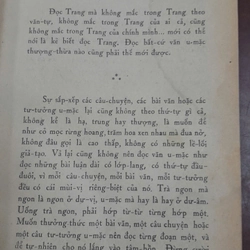 Đọc Trang mà không mắc trong Trang theo
vận-tự, không mắc trong Trang của ai cả, cũng
không mắc trong Trang của chính mình... mới có thể
nói là kẻ biết đọc Trang. Đọc bất-cứ văn u-mặc
thượng-thừa nào cũng phải thế mới được.
* * *
Sự sắp-xếp các câu-chuyện, các bài văn hoặc các
tư-tưởng u-mặc lại cũng không theo thứ-tự gì cả,
không kể là hạ, trung hay thượng, là muốn để
như cỏ mọc rừng hoang, trăm hoa sen nhau mà đua nở,
không đâu gọi là cao thấp, không có những lề-lối
giả-tạo. Vả lại cũng không nên đọc văn u-mặc như
đọc những bài luận dài có lớp-lang, có thể-thức đầu-
đuôi, vì mỗi câu-chuyện, mỗi bài văn, mỗi tư-tưởng
đều có cái mùi-vị riêng-biệt của nó. Trà ngon mà
không là ngon ở dư-vị, u-mặc mà hay là hay ở dư-âm.
Uống trà ngon, phải hớp từ-từ từng hớp một.
Muốn thưởng thức một bài văn, một câu chuyện hoặc
một câu tư-tưởng u-mặc nên đọc từng đoạn một, và
để tự-nhiên cho nó lắng vào tâm-hồn. Đừng